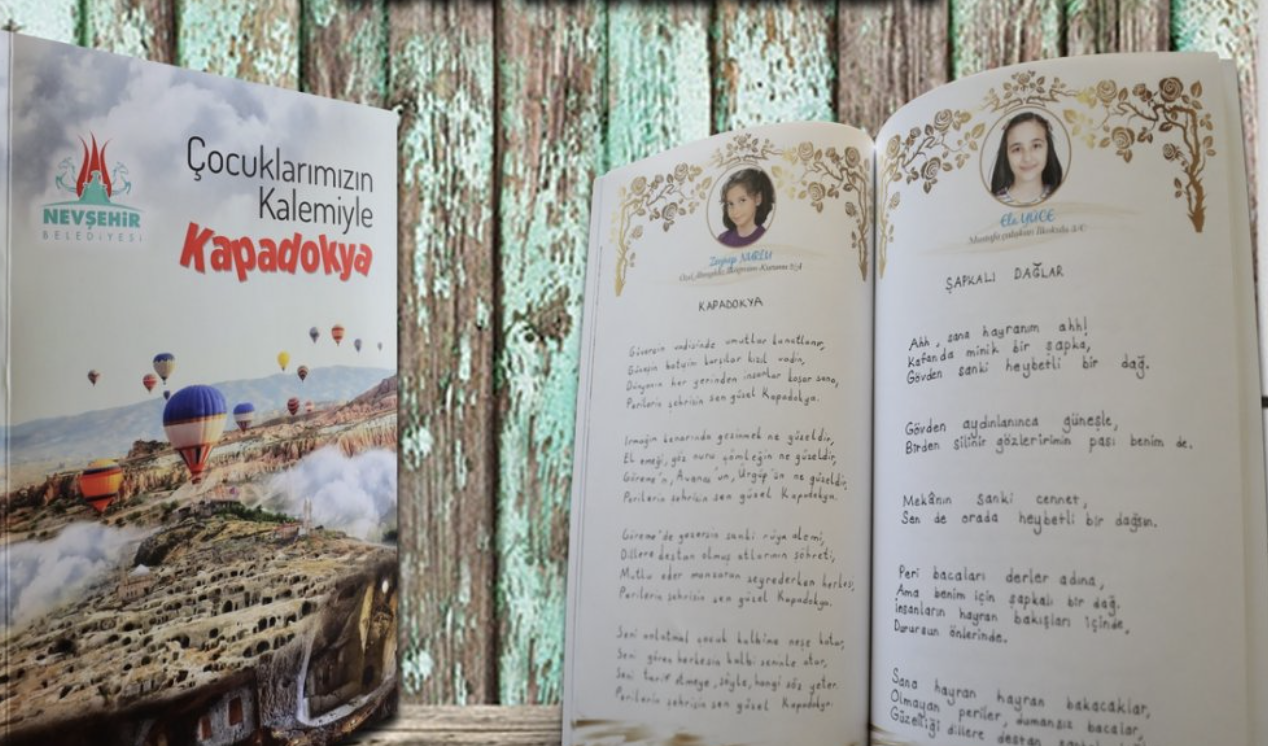 NEVŞEHİR
BELEDİYESİ
Çocuklarımızın
Kalemiyle
Kapadokya
Zeynep NARİN
KAPADOKYA
Güvercin vadisinde umutlar kanatlanır,
Güneşin batışın karşılar kızıl vadin,
Dünyanın her yerinden insanlar koşar sana,
Perilerin şehrisin sen güzel Kapadokya.
Irmağın kenarında gezinmek ne güzeldir,
El emeği, göz nuru çömleğin ne güzeldir,
Göreme'n, Avanos'un, Ürgüp'ün ne güzeldir,
Perilerin şehrisin sen güzel Kapadokya.
Göreme'de gezersin sanki rüya alemi,
Dillere destan olmuş atlarının şöhreti,
Mutlu eder manzaran seyrederken herkesi,
Perilerin şehrisin sen güzel Kapadokya.
Seni anlatmak çocuk kalbine neşe katar,
Seni gören herkesin kalbi seninle atar,
Seni tarif etmeye, söyle, hangi söz yeter.
Perilerin şehrisin sen güzel Kapadokya.
Ela YÜCE
Mustafa Çalışkan İlkokulu 3/C
ŞAPKALI DAĞLAR
Ahh, sana hayranım ahh!
Kafanda minik bir şapka,
Gövden sanki heybetli bir dağ.
Gövden aydınlanınca güneşle,
Birden silinir gözleririmin pası benim de.
Mekânın sanki cennet,
Sen de orada heybetli bir dağsın.
Peri bacaları derler adına,
Ama benim için şapkalı bir dağ.
İnsanların hayran bakışları içinde,
Durursun önlerinde.
Sana hayran hayran bakacaklar,
Olmayan periler, dumansız bacalar,
Güzelliği dillere destan